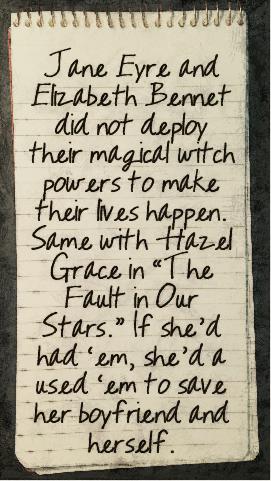 Jane Eyre and
Elizabeth Bennet
did not deploy
their magical witch
powers to make
their lives happen.
Same with Hazel
Grace in “The
Fault in Our
Stars.” If she’d
had ‘em, she’d a
used ‘em to save
her boyfriend and
herself.